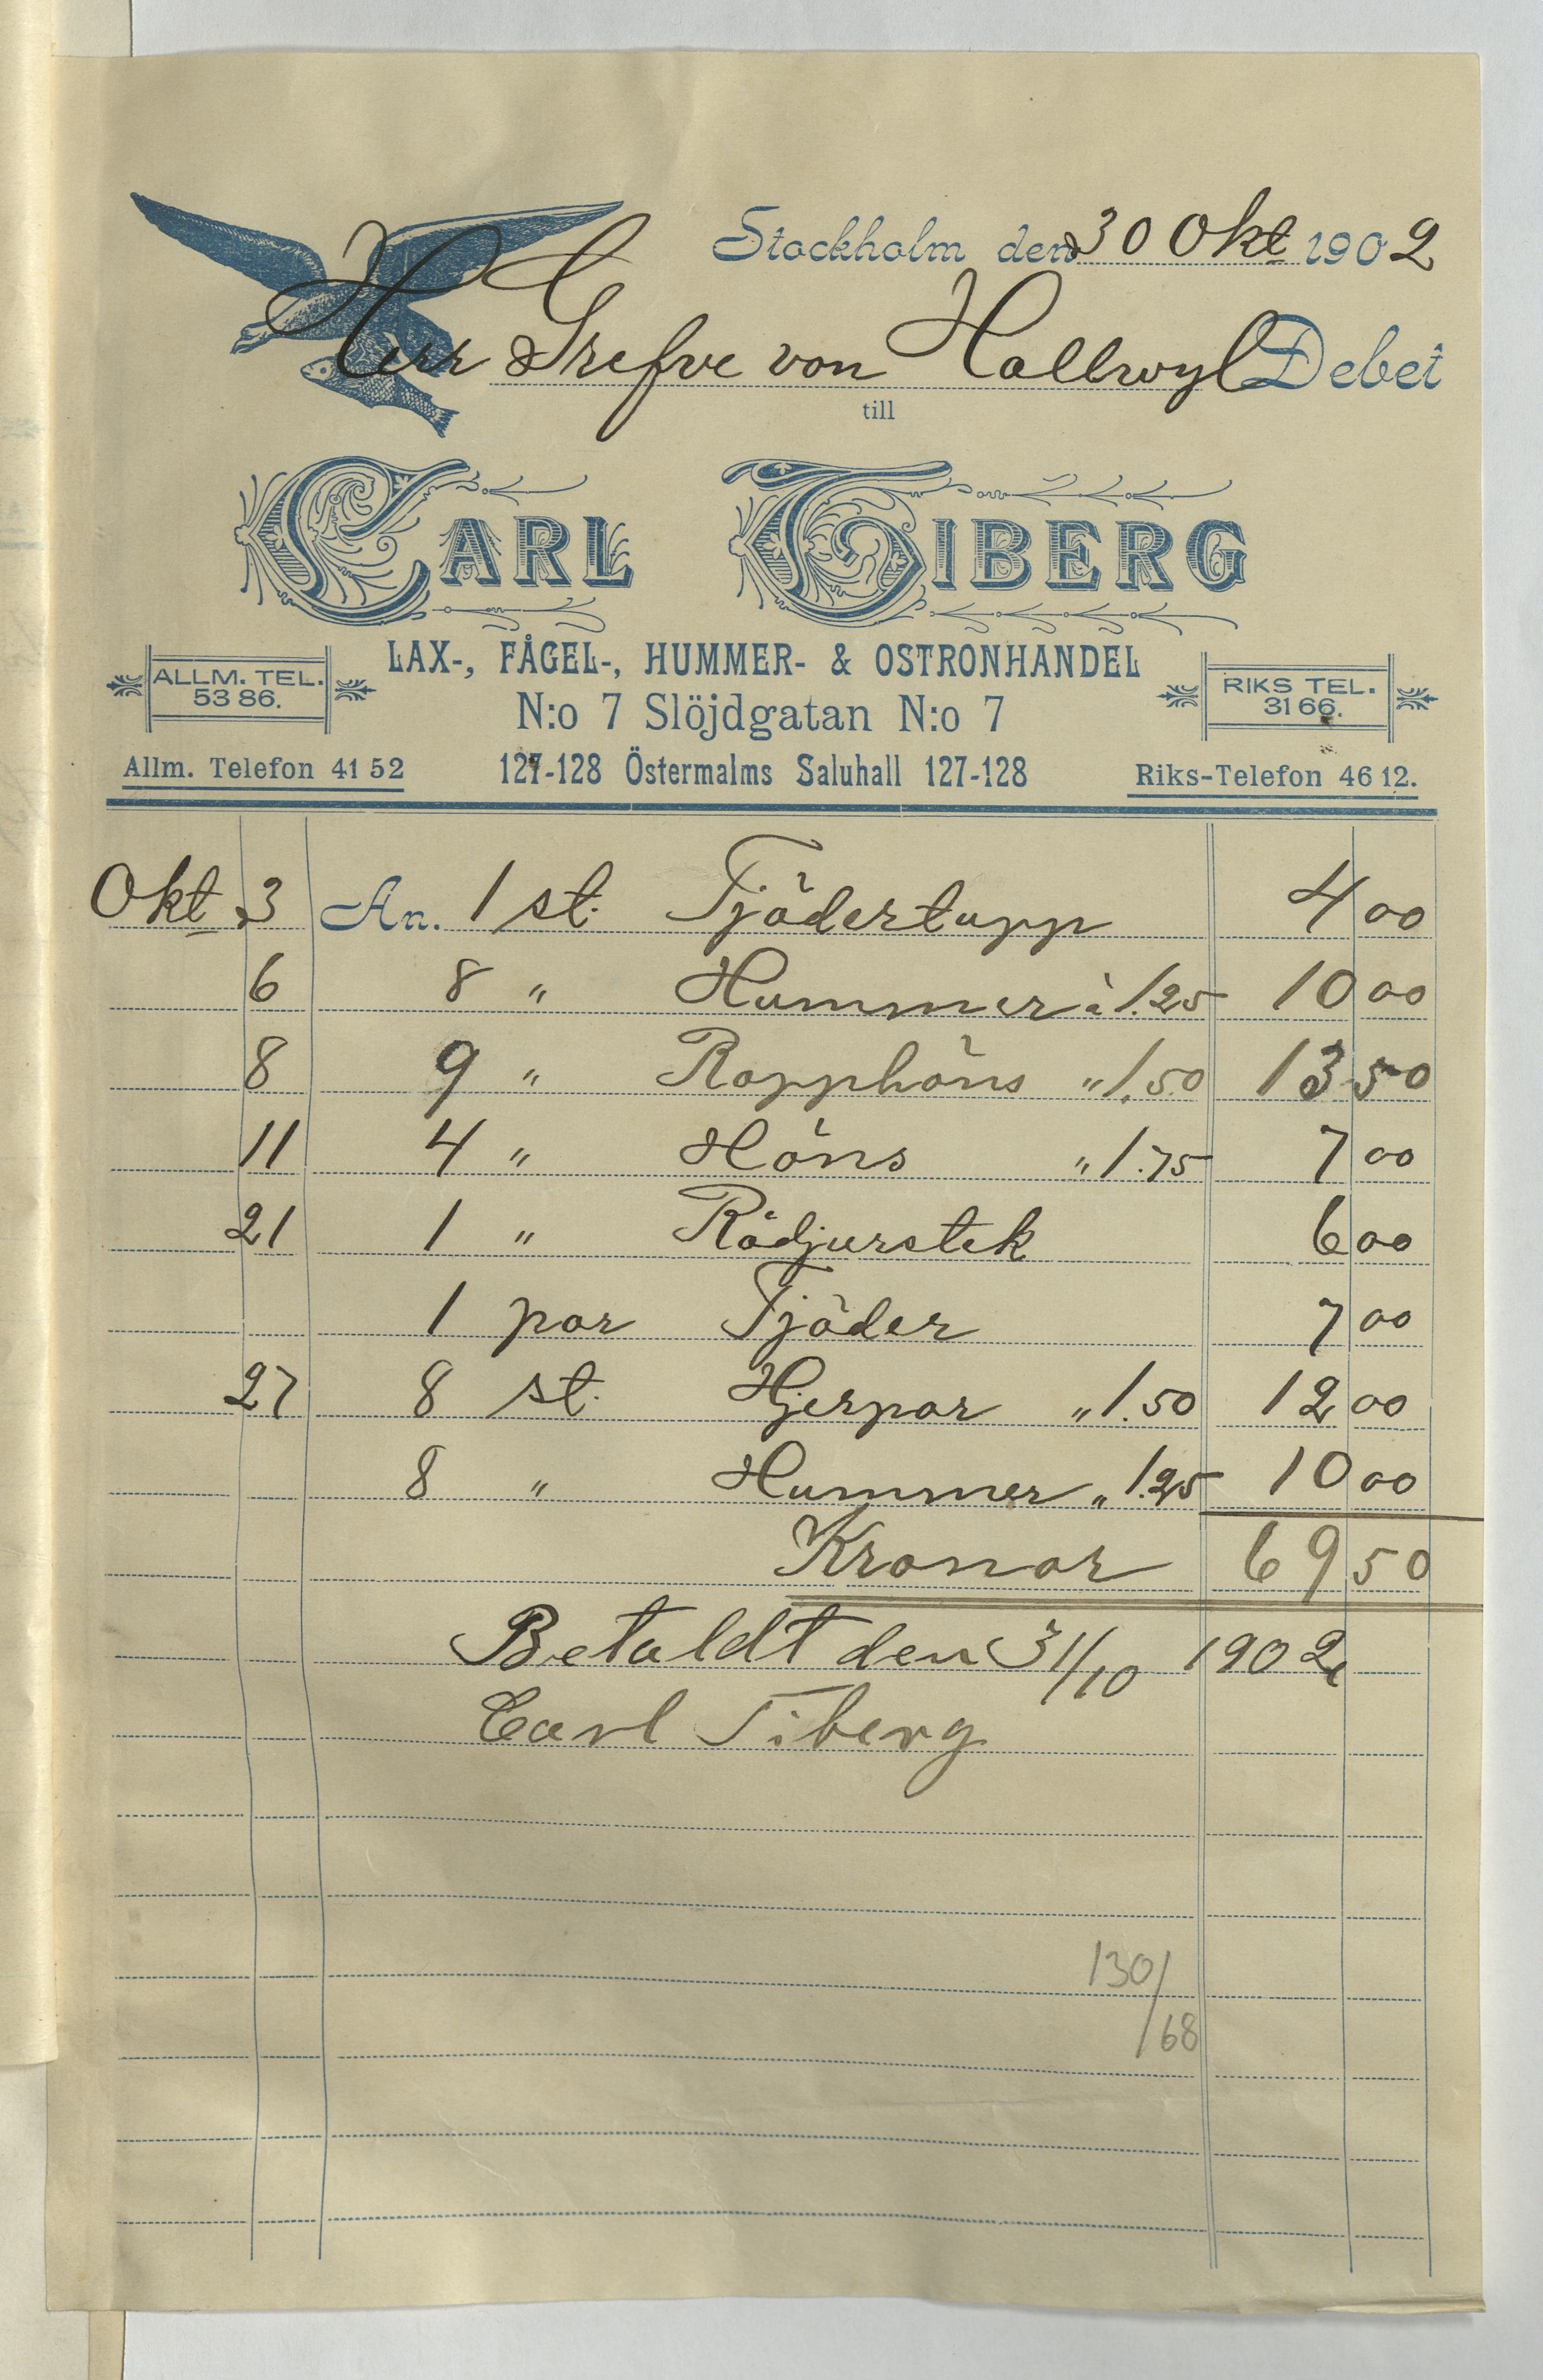 Stockholm den 30 Okt 1902
Herr Grefve von Hallwyl Debet
till
CARL TIBERG
LAX-, FÅGEL-, HUMMER- & OSTRONHANDEL
ALLM. TEL. 5386.
N:o 7 Slöjdgatan N:o 7
RIKS TEL. 3166.
Allm. Telefon 41 52
127-128 Östermalms Saluhall 127-128
Riks-Telefon 46 12.
Okt 3 An. 1 st. Tjädertupp 4 00
6 8 " Hummer à 1.25 10 00
8 9 " Rapphöns " 1.50 13 50
11 4 " Höns " 1.75 7 00
21 1 " Rådjurstek 6 00
1 par Tjäder 7 00
27 8 st. Hjerpar " 1.50 12 00
8 " Hummer " 1.25 10 00
Kronor 69 50
Betaldt den 31/10 1902
Carl Tiberg
130/68